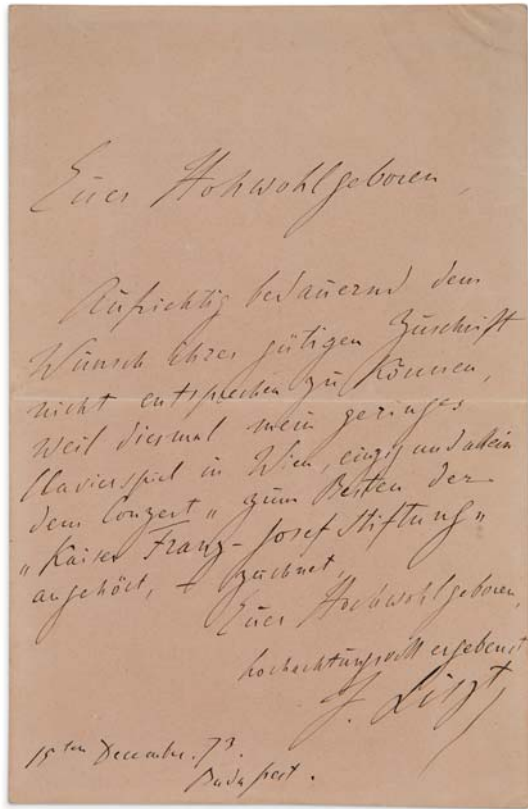 Euer Hohwohlgeboren,
Aufrichtig bedauernd dem
Wunsch ihrer gütigen Zuschrift
nicht entsprechen zu können,
weil diesmal mein geringes
Clavierspiel in Wien, einzig und allein
dem Conzert „zum Besten der
„Kaiser Franz-Josef Stiftung„
angehört, + zeichnet,
Euer Hochwohlgeboren,
hochachtungsvoll ergebenst
F. Liszt,
15ten December. 73.
Budapest.